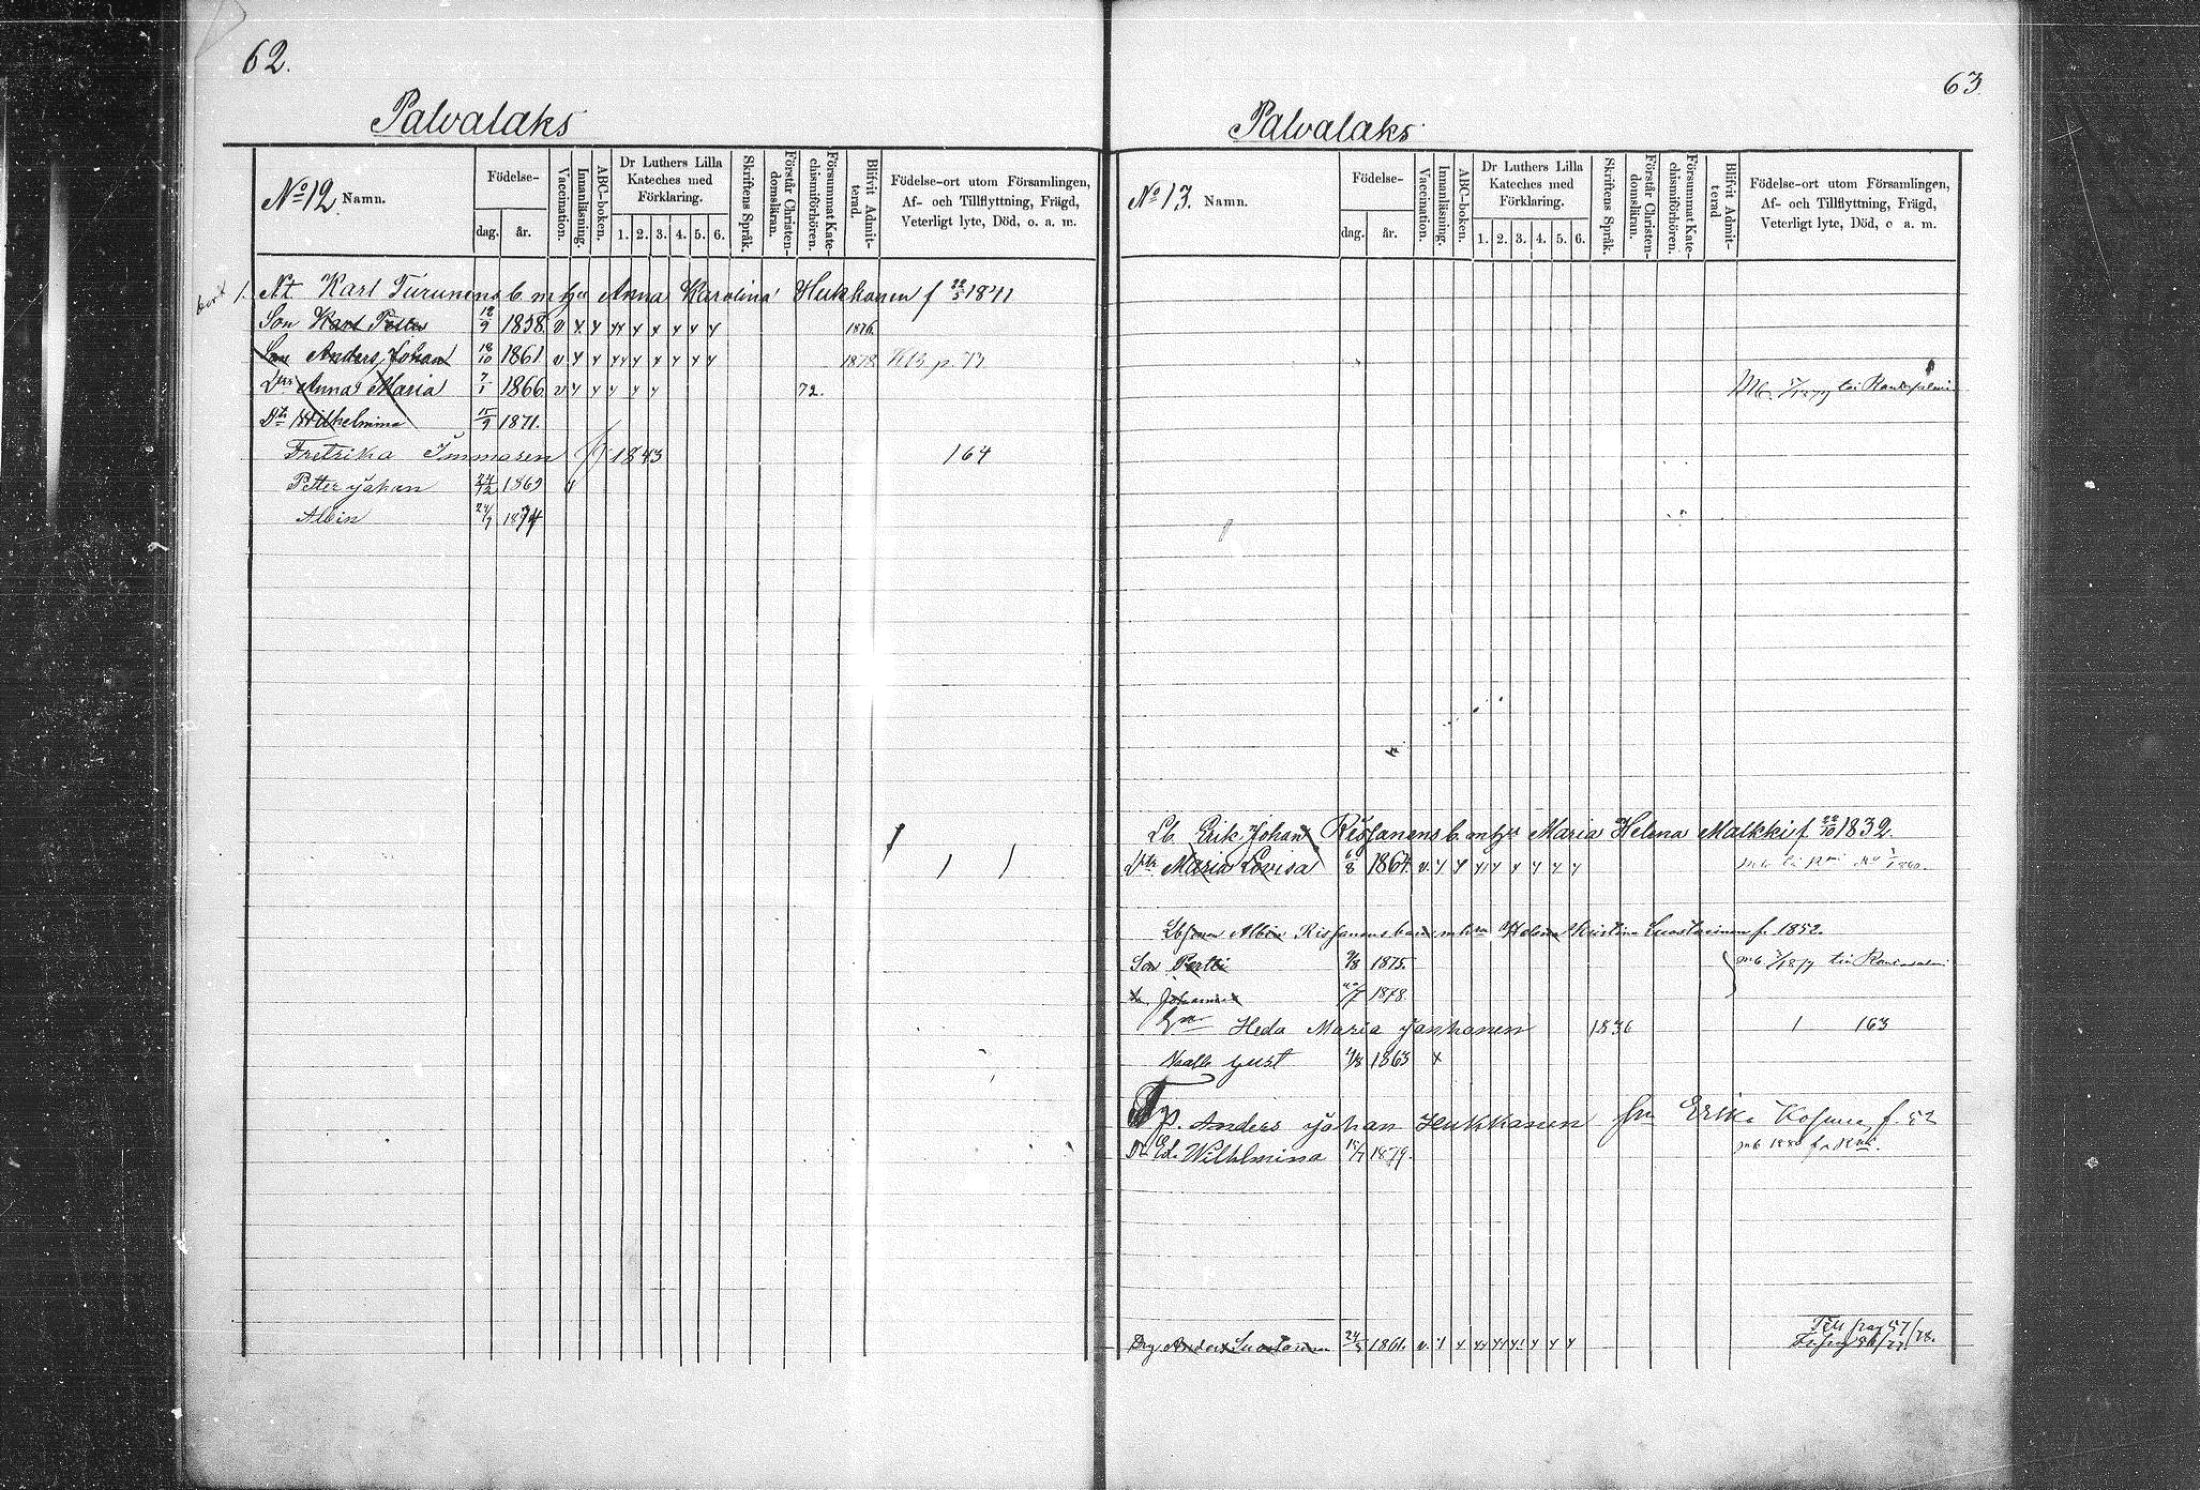 62.
Palvalaks
No 12. Namn.
Födelse-
dag. år.
Vaccination.
Innanläsning.
ABC-boken.
Dr Luthers Lilla
Kateches med
Förklaring.
1. 2. 3. 4. 5. 6.
Skriftens Språk.
Förstår Christen-
domsläran.
Försummat Kate-
chismiförhören.
Blifvit Admit-
terad.
Födelse-ort utom Församlingen,
Af- och Tillflyttning, Frägd,
Veterligt lyte, Död, o. a. m.
1. Nt Karl Turunens b. m hu Anna Karolina Hukkanen f 22/5 1841
Son Karl Petter 12/9 1858. v y y yy y y y y y 1876.
Son Anders Johan 18/10 1861 v. y y yy y y y y y 1878
Dtr Anna Maria 7/1 1866 v y y y y y 72.
Dtr Wilhelmina 15/9 1871.
Fretrika Immonen 1843 164
Petter Johan 24/12 1869
Albin 1874
63
Palvalaks
No 13. Namn.
Födelse-
dag. år.
Vaccination.
Innanläsning.
ABC-boken.
Dr Luthers Lilla
Kateches med
Förklaring.
1. 2. 3. 4. 5. 6.
Skriftens Språk.
Förstår Christen-
domsläran.
Försummat Kate-
chismiförhören.
Blifvit Admit-
terad
Födelse-ort utom Församlingen,
Af- och Tillflyttning, Frägd,
Veterligt lyte, Död, o a. m.
Lb. Erik Johan Rissanens b. m hu Maria Helena Malkki f. 22/10 1832.
Dtr Maria Lovisa 1864. v. y y yy y y y y
Albin Rissanens Helena Kristina Luostarinen f. 1852.
Son Pertti 9/8 1875.
Johannes 1878.
Heda Maria Janhonen 1836 1 163
Just 1863 x
Anders Johan Hukkanen Erika f. 52
Dt Ed. Wilhelmina 1879.
Drg Anders Luostarinen 24/5 1861. v. y y yy yy y y y y